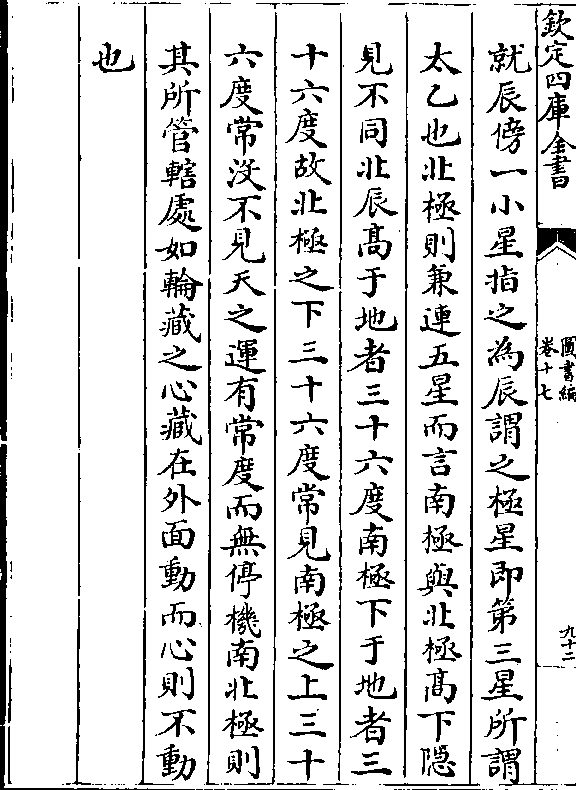 欽定四庫全書
圖書編
卷十七
九十二
就辰傍一小星指之為辰謂之極星即第三星所謂
太乙也北極則兼連五星而言南極與北極髙下隠
見不同北辰髙于地者三十六度南極下于地者三
十六度故北極之下三十六度常見南極之上三十
六度常没不見天之運有常度而無停機南北極則
其所管轄處如輪藏之心藏在外面動而心則不動
也